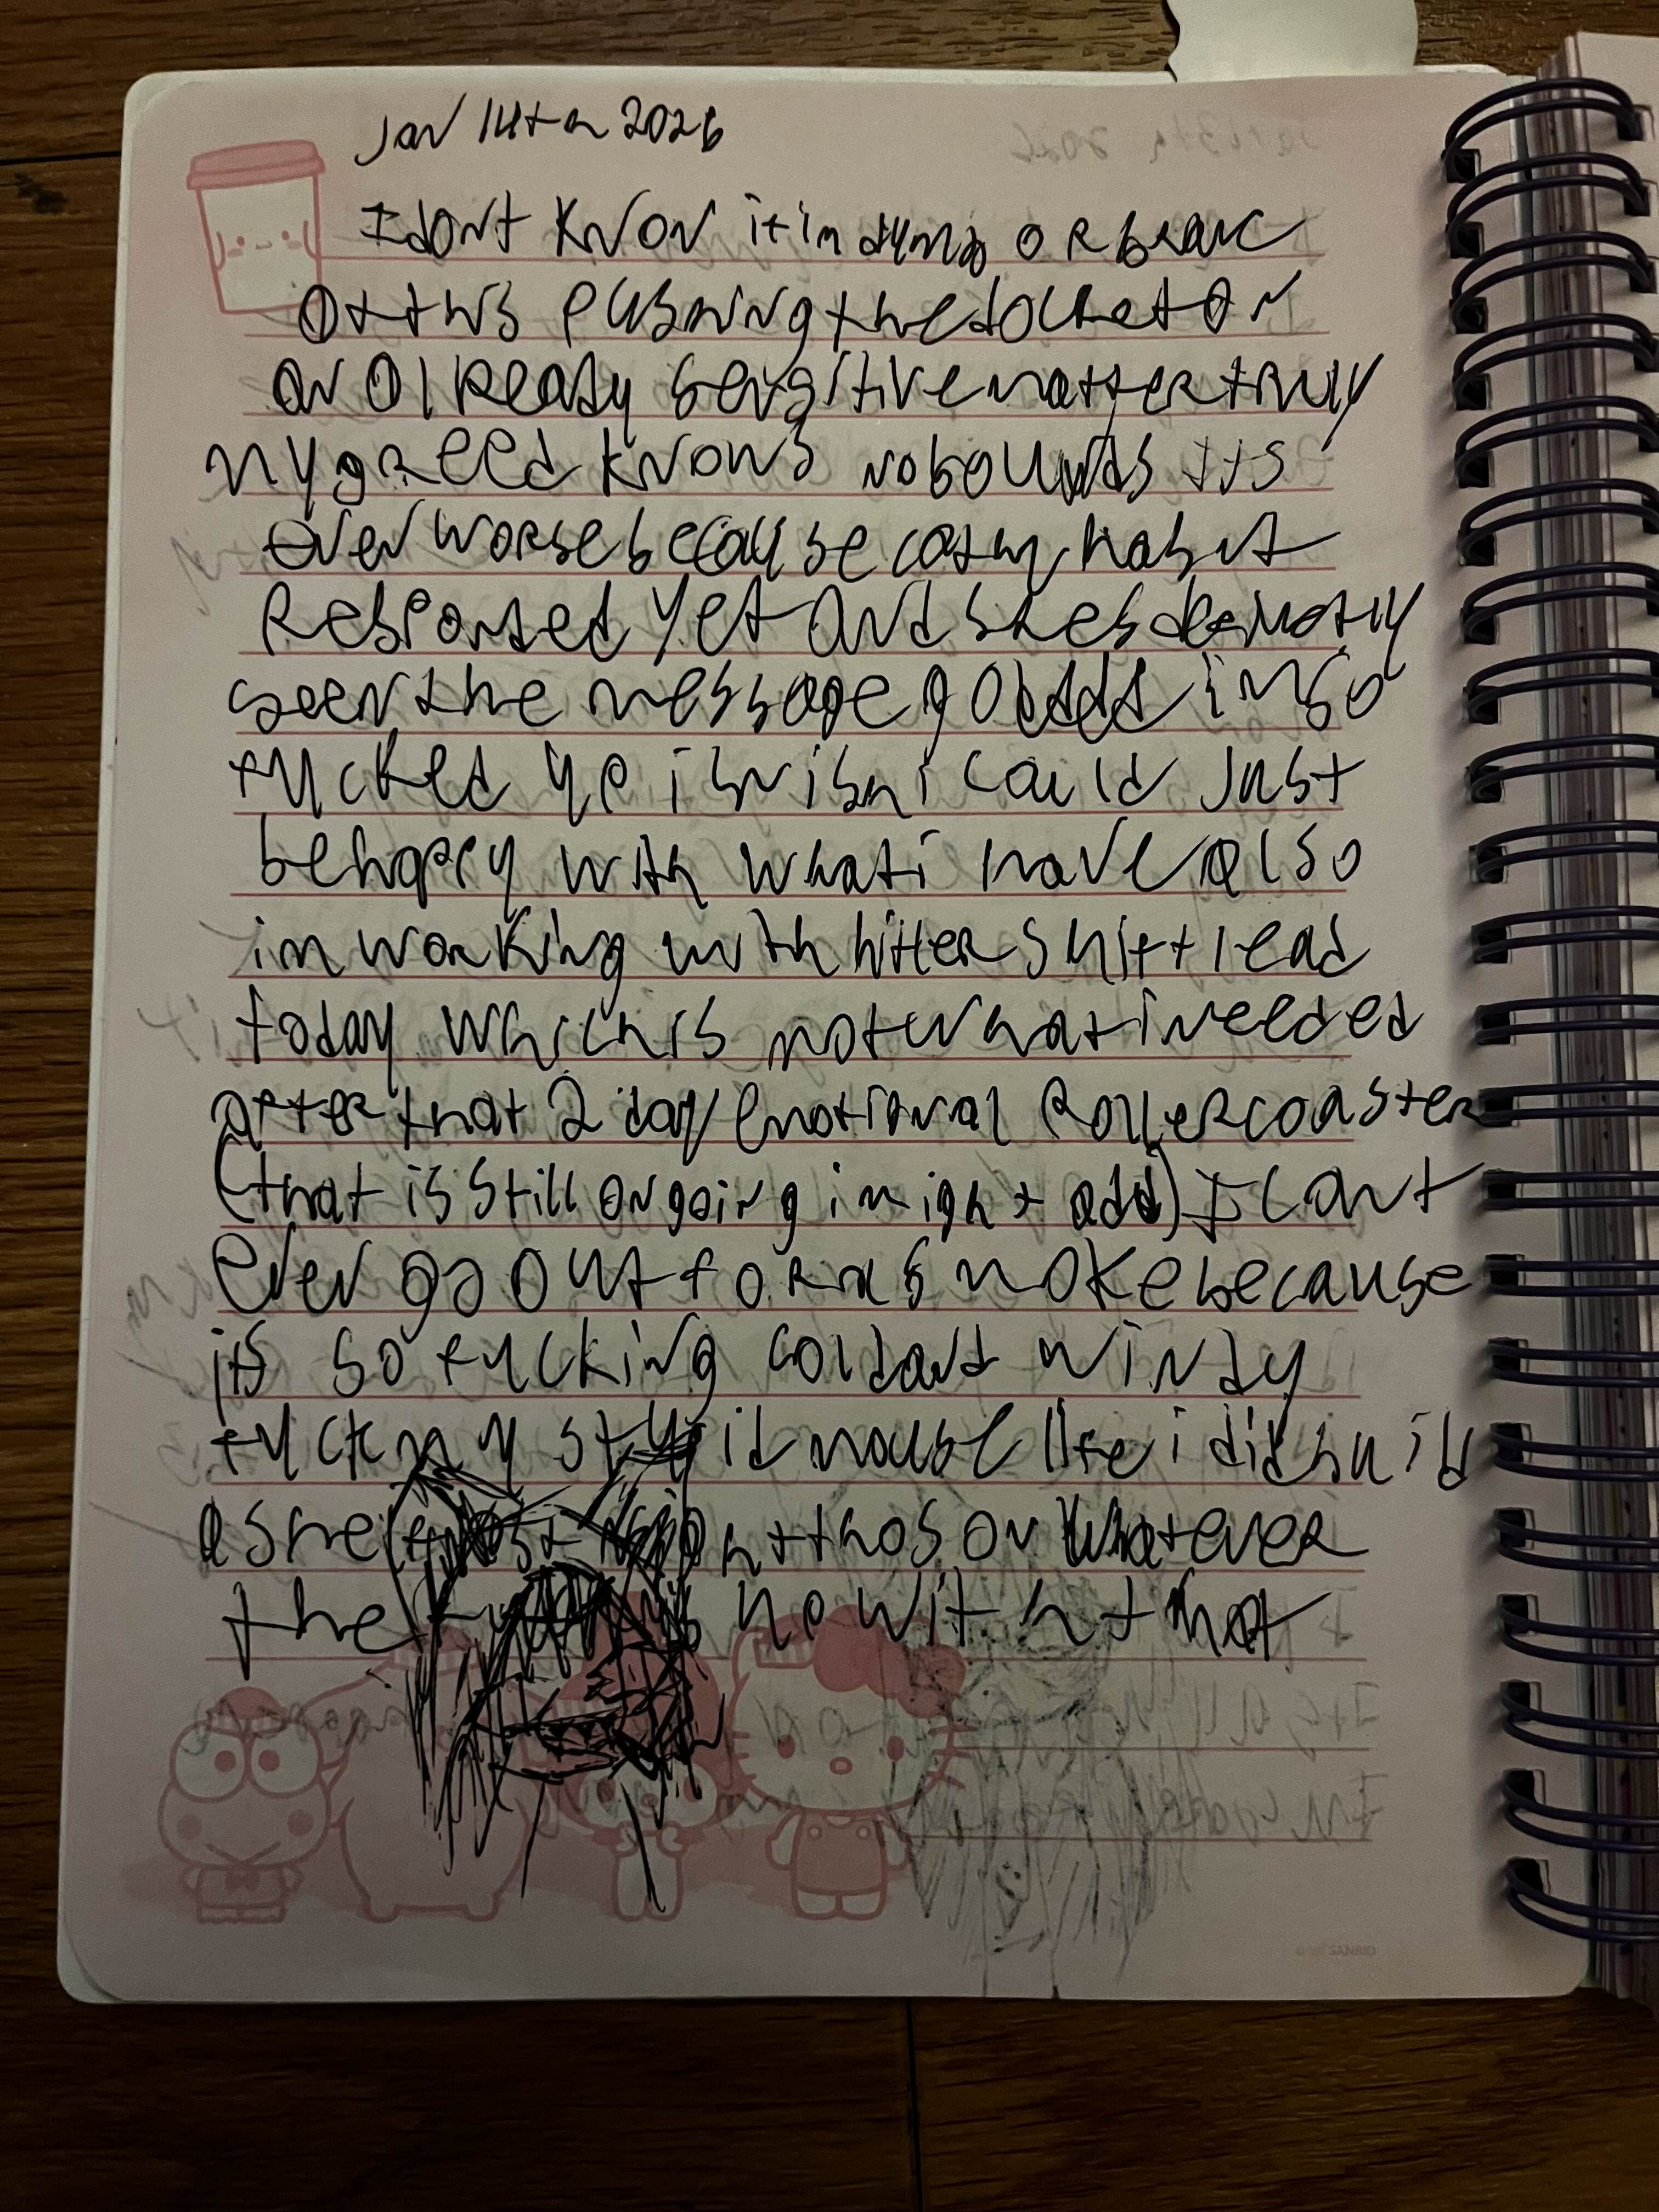 Jan 14th 2026
I dont know if im dumb or brave
for this pushing the docket on
an already sensitive matter truly
my greed knows no bounds its
even worse because casm hasnt
responded yet and shes definotly
seen the message godddd im so
fucked up i wish i could just
be happy with what i have also
im working with hitler shift lead
today which is not what i needed
after that 2 day emotional rollercoaster
(that is still ongoing i might add) I cant
even go out for a smoke because
its so fucking cold and windy
fuck my stupid mouse life i didsuib
ashe thos on whatever
the up with that
SANRIO